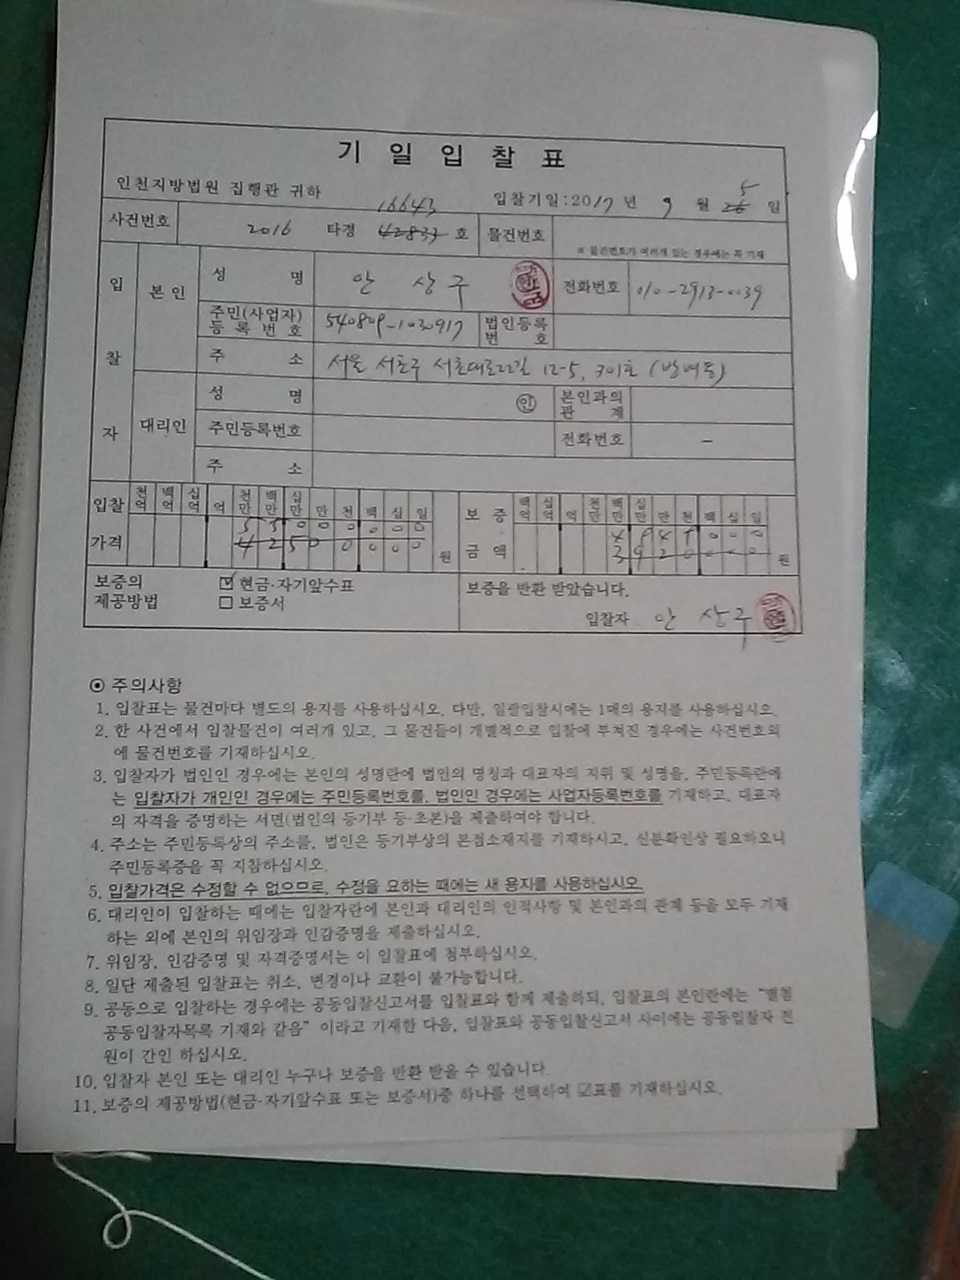 기 일 입 찰 표
인천지방법원 집행관 귀하 입찰기일:2017 년 9 월 5 26 일
사건번호 2016 타경 16643 42833 호 물건번호 ※ 물건번호가 여러개 있는 경우에는 꼭 기재
입 찰 자
본 인
성 명 안 상 구 전화번호 010-2913-0039
주민(사업자) 등 록 번 호 540809-1030917 법인등록 번 호
주 소 서울 서초구 서초대로22길 12-5, 301호 (방배동)
대리인
성 명 ㊞ 본인과의 관 계
주민등록번호 전화번호 -
주 소
입찰 가격 천억 백억 십억 억 천만 백만 십만 만 천 백 십 일
55000000
42500000 원
보 증 금 액 백억 십억 억 천만 백만 십만 만 천 백 십 일
3920000 원
보증의 제공방법 ☑ 현금·자기앞수표
□ 보증서
보증을 반환 받았습니다.
입찰자 안 상 구
⊙ 주의사항
1. 입찰표는 물건마다 별도의 용지를 사용하십시오. 다만, 일괄입찰시에는 1매의 용지를 사용하십시오.
2. 한 사건에서 입찰물건이 여러개 있고, 그 물건들이 개별적으로 입찰에 부쳐진 경우에는 사건번호외
에 물건번호를 기재하십시오.
3. 입찰자가 법인인 경우에는 본인의 성명란에 법인의 명칭과 대표자의 지위 및 성명을, 주민등록란에
는 입찰자가 개인인 경우에는 주민등록번호를, 법인인 경우에는 사업자등록번호를 기재하고, 대표자
의 자격을 증명하는 서면(법인의 등기부 등·초본)을 제출하여야 합니다.
4. 주소는 주민등록상의 주소를, 법인은 등기부상의 본점소재지를 기재하시고, 신분확인상 필요하오니
주민등록증을 꼭 지참하십시오.
5. 입찰가격은 수정할 수 없으므로, 수정을 요하는 때에는 새 용지를 사용하십시오.
6. 대리인이 입찰하는 때에는 입찰자란에 본인과 대리인의 인적사항 및 본인과의 관계 등을 모두 기재
하는 외에 본인의 위임장과 인감증명을 제출하십시오.
7. 위임장, 인감증명 및 자격증명서는 이 입찰표에 첨부하십시오.
8. 일단 제출된 입찰표는 취소, 변경이나 교환이 불가능합니다.
9. 공동으로 입찰하는 경우에는 공동입찰신고서를 입찰표와 함께 제출하되, 입찰표의 본인란에는 "별첨
공동입찰자목록 기재와 같음" 이라고 기재한 다음, 입찰표와 공동입찰신고서 사이에는 공동입찰자 전
원이 간인 하십시오.
10. 입찰자 본인 또는 대리인 누구나 보증을 반환 받을 수 있습니다.
11. 보증의 제공방법(현금·자기앞수표 또는 보증서)중 하나를 선택하여 ☑표를 기재하십시오.